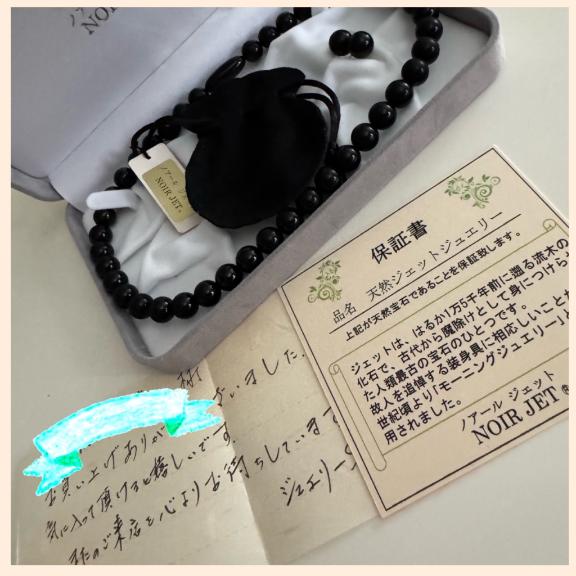 ノアール
NOIR
ノアール ジェ
NOIR JET®
保証書
品名 天然ジェットジュエリー
上記が天然宝石であることを保証致します。
ジェットは、はるか1万5千年前に遡る流木の
化石で、古代から魔除けとして身につけら
れた人類最古の宝石のひとつです。
故人を追悼する装身具に相応しいことか
世紀頃より「モーニングジュエリー」と
用されました。
ノアール ジェット
NOIR JET®
ざいました。
お買い上げありが
気に入って頂けると嬉しいです
またのご来店を心よりお待ちしています
ジュエリー